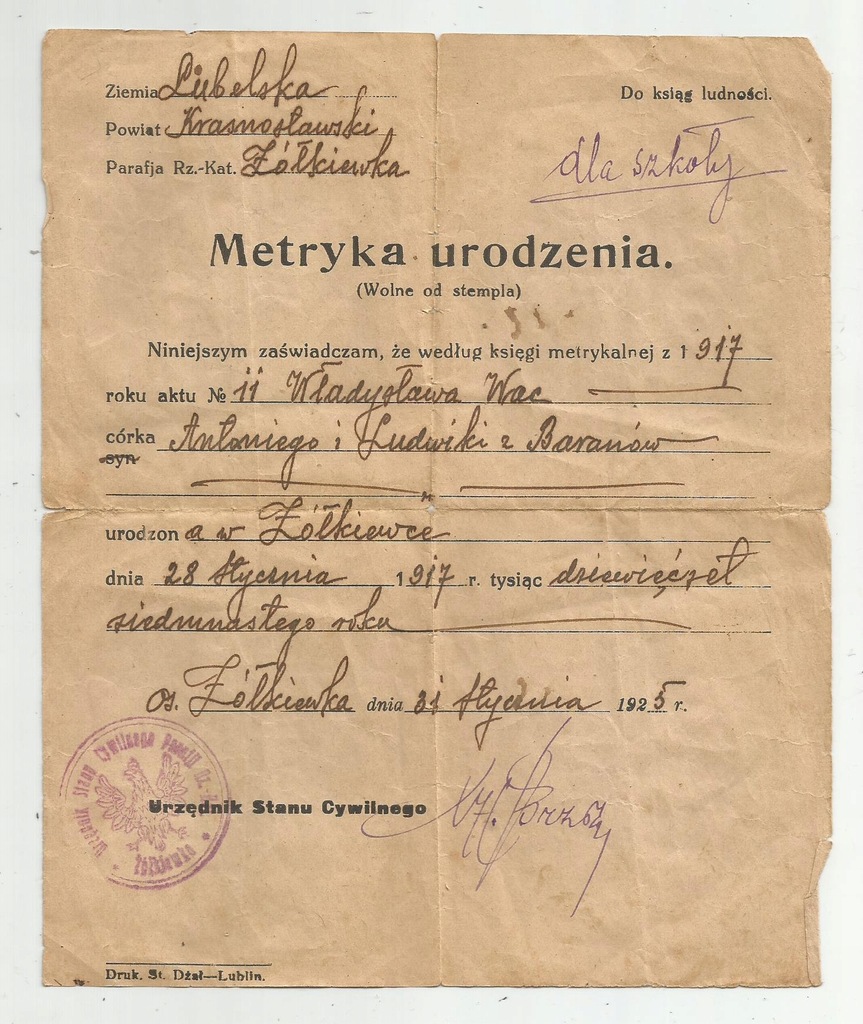 Ziemia Lubelska
Do ksiąg ludności.
Powiat Krasnostawski
Parafja Rz.-Kat. Żółkiewka
dla szkoły
Metryka urodzenia.
(Wolne od stempla)
Niniejszym zaświadczam, że według księgi metrykalnej z 1917
roku aktu № 11 Władysława Wac
córka Antoniego i Ludwiki z Baranów
syn
urodzona w Żółkiewce
dnia 28 stycznia 1917 r. tysiąc dziewięćset
siedmnastego roku
os. Żółkiewka dnia 31 stycznia 1925 r.
Urzędnik Stanu Cywilnego Parafji Rz.-
Żółkiewka
Urzędnik Stanu Cywilnego
Druk. St. Dżał—Lublin.